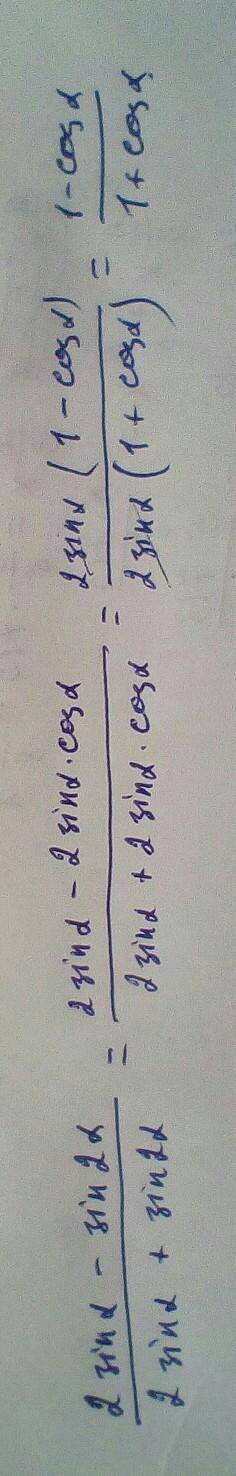 \frac{2 sin α - sin 2α}{2 sin α + sin 2α} = \frac{2 sin α - 2 sin α · cos α}{2 sin α + 2 sin α · cos α} = \frac{2 sin α (1 - cos α)}{2 sin α (1 + cos α)} = \frac{1 - cos α}{1 + cos α}